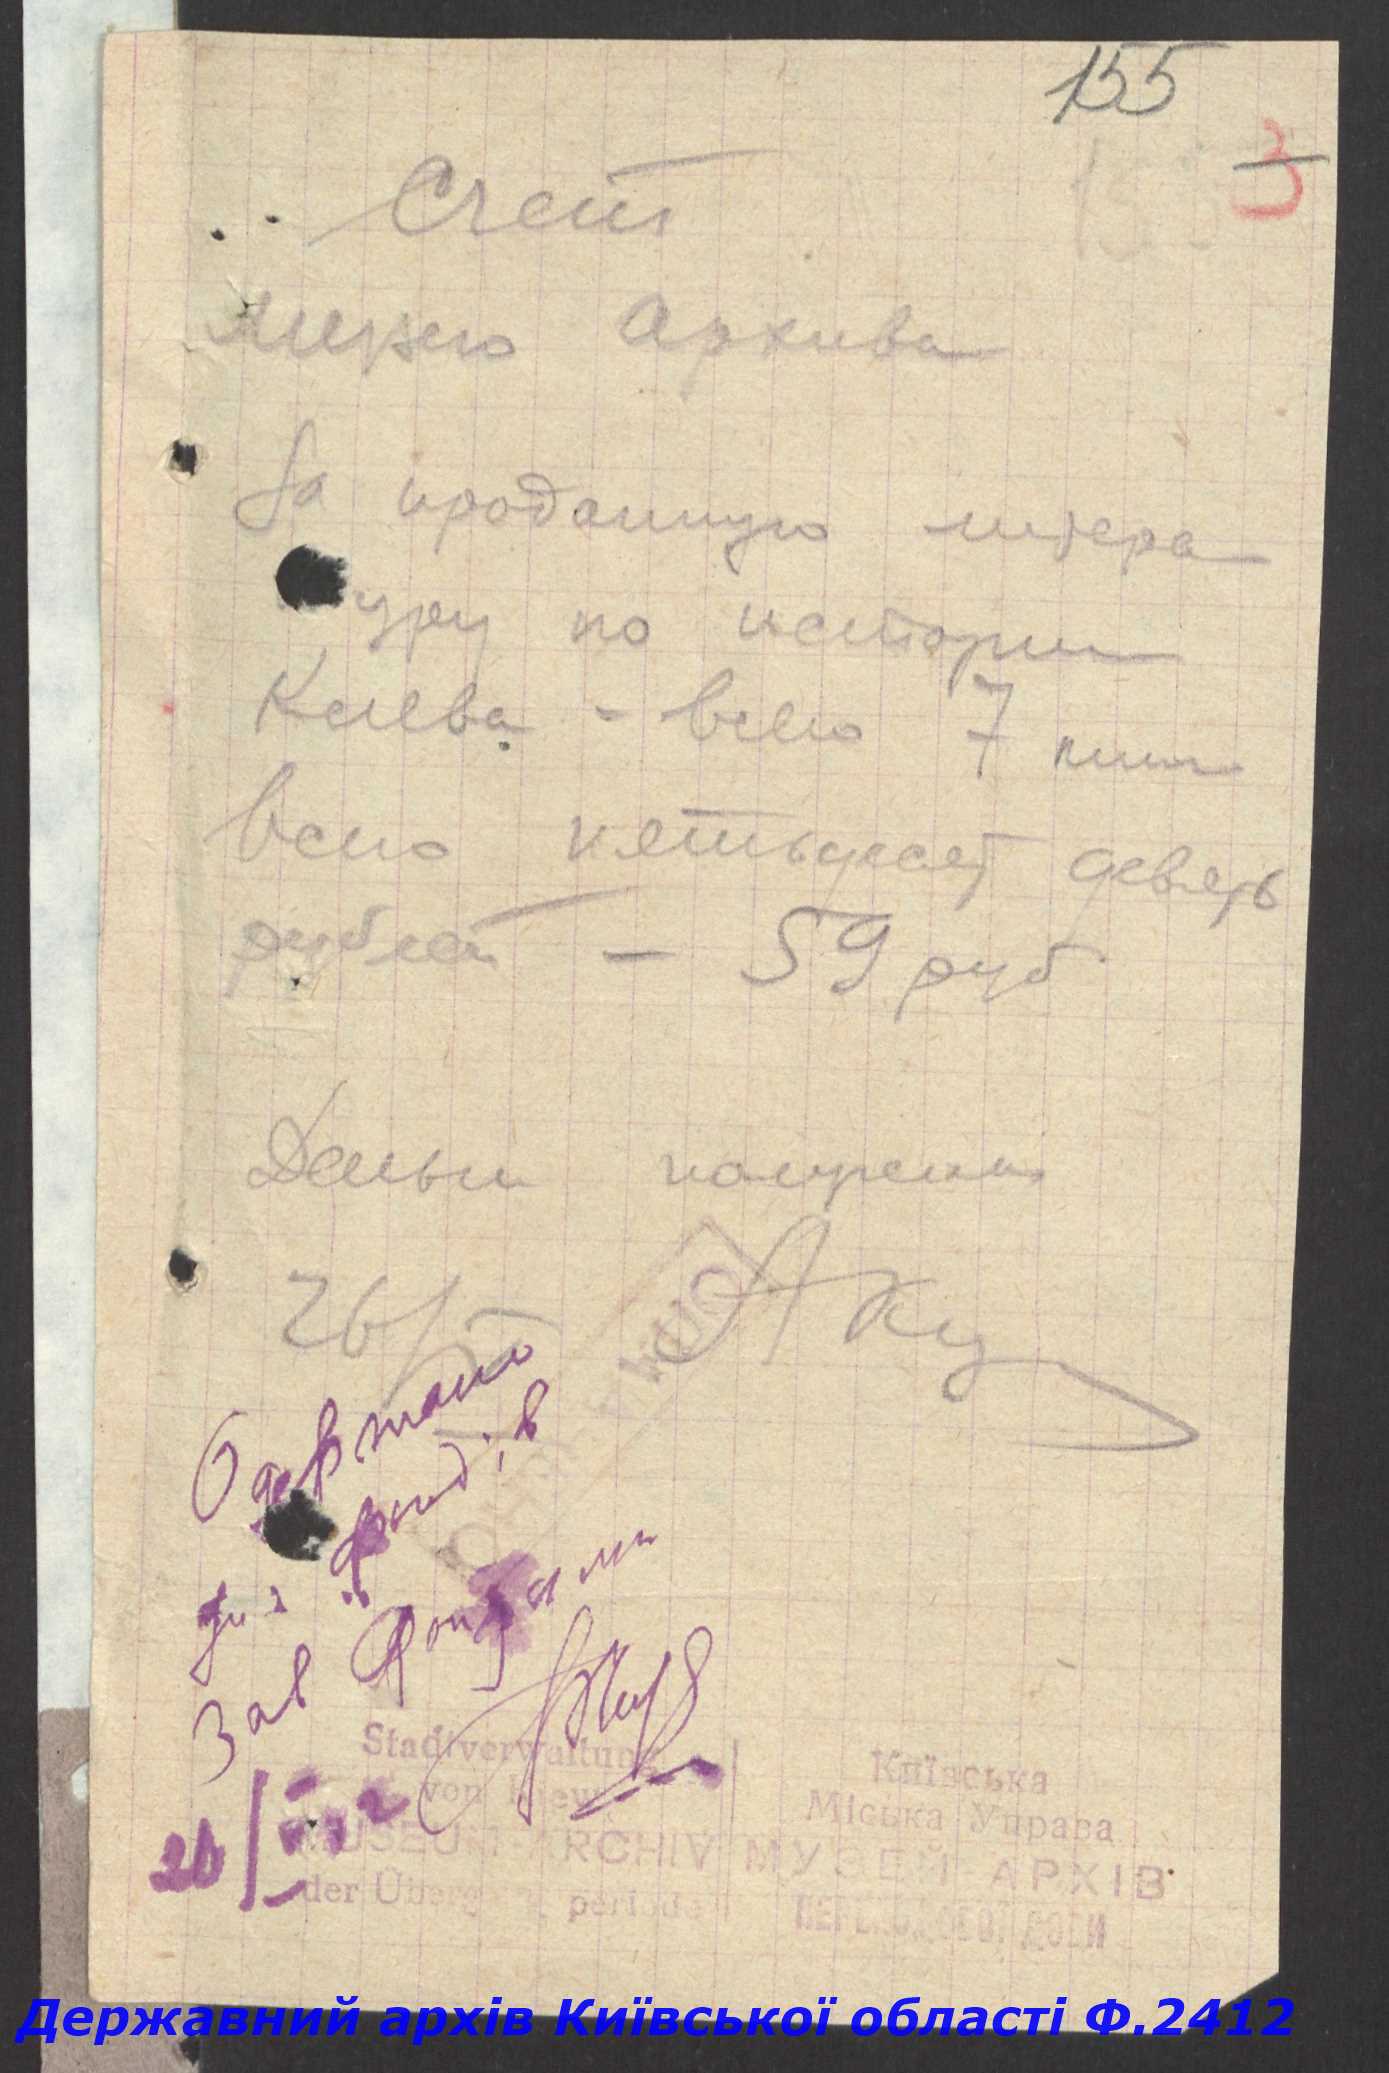 155
3
Счет
музею Архива
За проданную литера
туру по истории
Киева - всего 7 книг
всего пятьдесят девять
рублей - 59 руб
Деньги получены
26/
Одержано
для фондів
Зав Фондами
Stadtverwaltung
von Kiew
MUSEUM-ARCHIV
der Übergangsperiode
Київська
Міська Управа
МУЗЕЙ-АРХІВ
ПЕРЕХОДОВОЇ ДОБИ
Державний архів Київської області Ф.2412